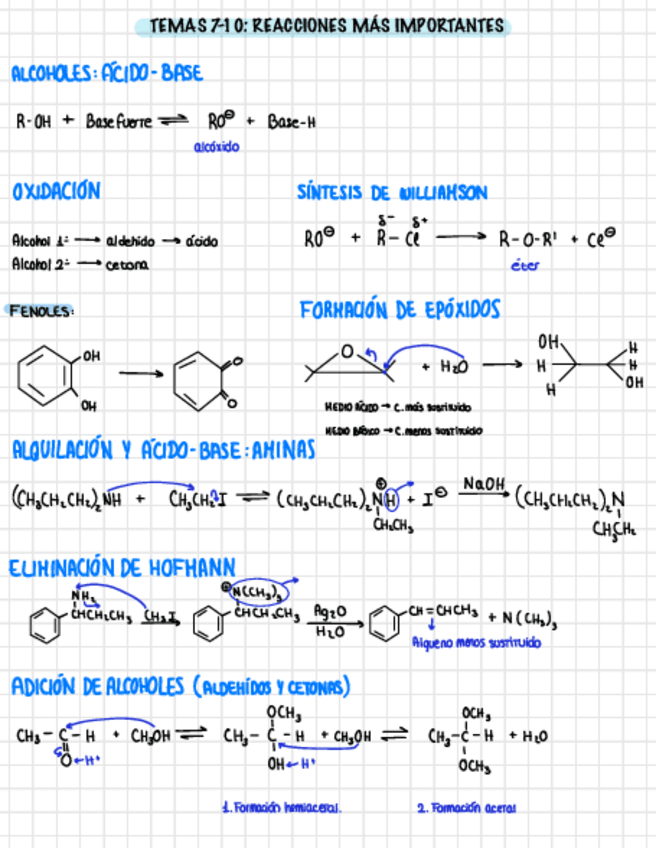 TEMAS 7-10: REACCIONES MÁS IMPORTANTES
ALCOHOLES: ÁCIDO-BASE
R-OH + Base fuerte ⇌ RO⊖ + Base-H
alcóxido
OXIDACIÓN
Alcohol 1º ⟶ aldehido ⟶ ácido
Alcohol 2º ⟶ cetona
SÍNTESIS DE WILLIAMSON
δ- δ+
RO⊖ + R-Cl ⟶ R-O-R' + Cl⊖
éter
FENOLES:
OH
OH
⟶
O
O
FORMACIÓN DE EPÓXIDOS
O + H2O ⟶
OH
H
H
H
H
OH
MEDIO ÁCIDO → C. más sustituido
MEDIO BÁSICO → C. menos sustituido
ALQUILACIÓN Y ÁCIDO-BASE: AMINAS
(CH3CH2CH2)2NH + CH3CH2I ⇌ (CH3CH2CH2)2N⊕H + I⊖ NaOH ⟶ (CH3CH2CH2)2N
CH2CH3
CH3CH2
ELIMINACIÓN DE HOFMANN
NH2
CHCH2CH3
CH3I
⊕N(CH3)3
CHCH2CH3
Ag2O
H2O
CH=CHCH3 + N(CH3)3
Alqueno menos sustituido
ADICIÓN DE ALCOHOLES (ALDEHÍDOS Y CETONAS)
OCH3
OCH3
CH3-C-H + CH3OH ⇌ CH3-C-H + CH3OH ⇌ CH3-C-H + H2O
O←H+
OH←H+
OCH3
1. Formación hemiacetal.
2. Formación acetal